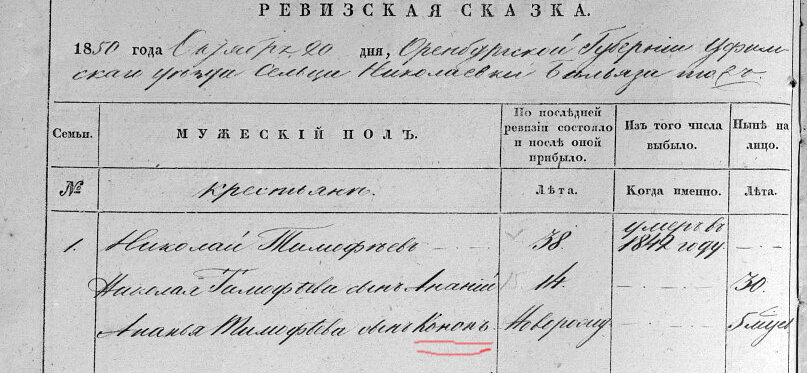 РЕВИЗСКАЯ СКАЗКА.
1850 года Октября 20 дня, Оренбургской Губернии Уфим-
скаго уезда Сельца Николаевки Бильяза тожъ
Семьи.
МУЖЕСКІЙ ПОЛЪ.
По послѣдней
ревизіи состояло
и послѣ оной
прибыло.
Изъ того числа
выбыло.
Нынѣ на
лицо.
№
Крестьяне.
Лѣта.
Когда именно.
Лѣта.
1. Николай Тимофѣевъ 38 умеръ въ 1842 году
Николая Тимофѣева сынъ Ананій 14. 30.
Ананья Тимофѣева сынъ Кононъ Новорожд 5 мцсв